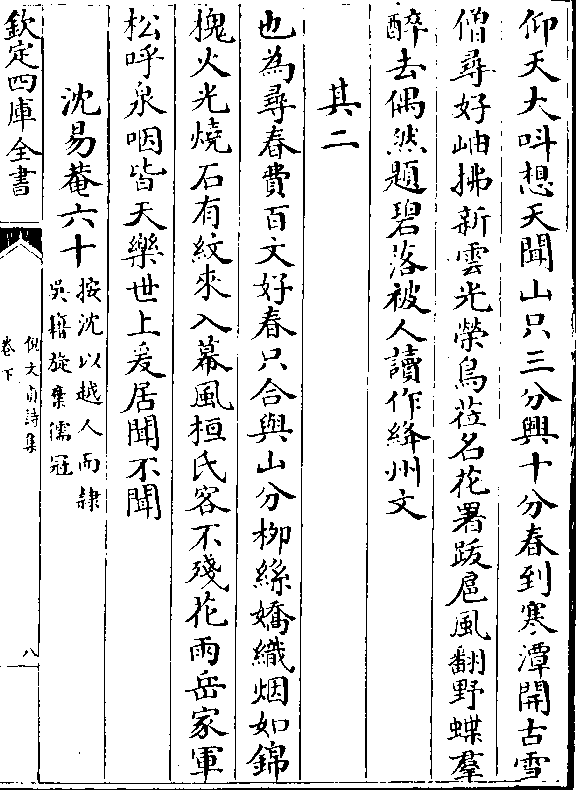 仰天大呌想天聞山只三分興十分春到寒潭開古雪
僧尋好岫拂新雲光榮鳥莅名花署跋扈風翻野蝶羣
醉去偶然題碧落被人讀作絳州文
其二
也為尋春費百文好春只合與山分柳絲嬌織烟如錦
槐火光燒石有紋來入幕風桓氏客不殘花雨岳家軍
松呼泉咽皆天樂世上爰居聞不聞
沈易菴六十
按沈以越人而隷
吳籍旋棄儒冠
欽定四庫全書
倪文貞詩集
卷下
八